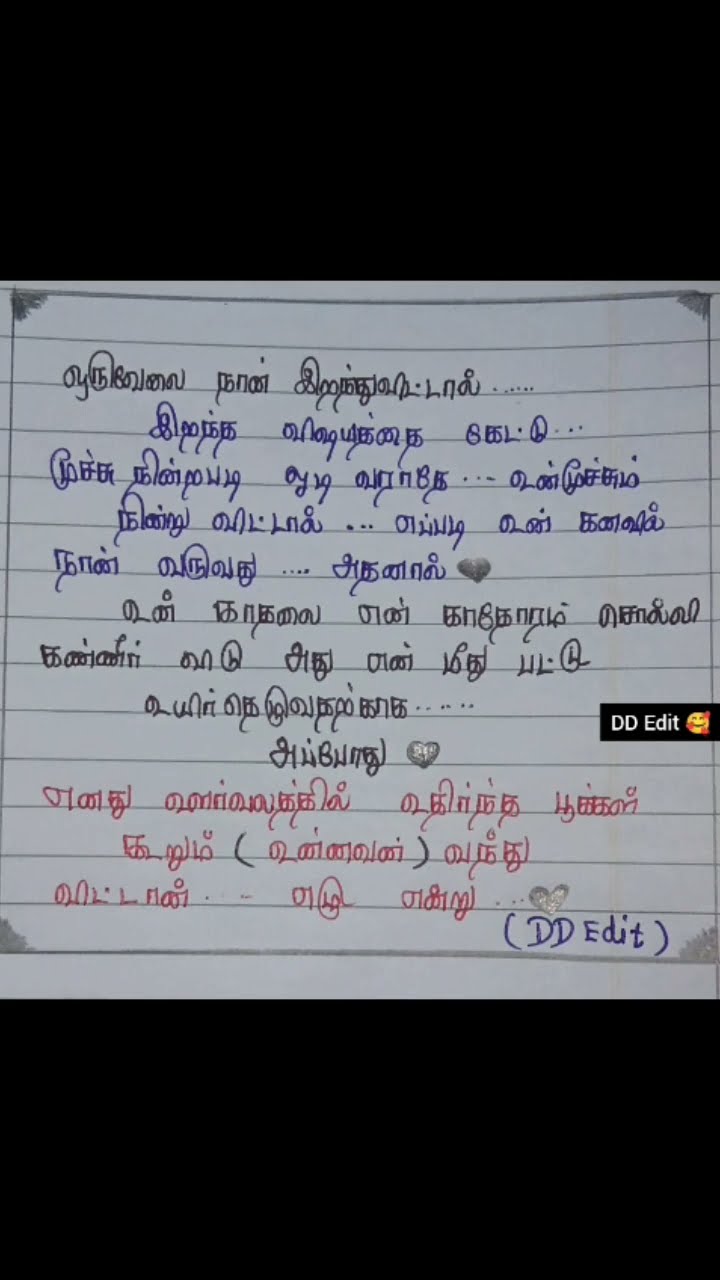 ஒருவேளை நான் இறந்துவிட்டால் ......
இறந்த விஷயத்தை கேட்டு...
மூச்சு நின்றபடி ஓடி வராதே ... உன்மூச்சும்
நின்று விட்டால் ... எப்படி உன் கனவில்
நான் வருவது .... அதனால் 🩶
உன் காதலை என் காதோரம் சொல்லி
கண்ணீர் விடு அது என் மீது பட்டு
உயிர்தெழுவதற்காக ......
DD Edit 🥰
அப்போது 🩶
எனது ஊர்வலத்தில் உதிர்ந்த பூக்கள்
கூறும் ( உன்னவன் ) வந்து
விட்டான் ... எழு என்று ... 🩶
( DD Edit )